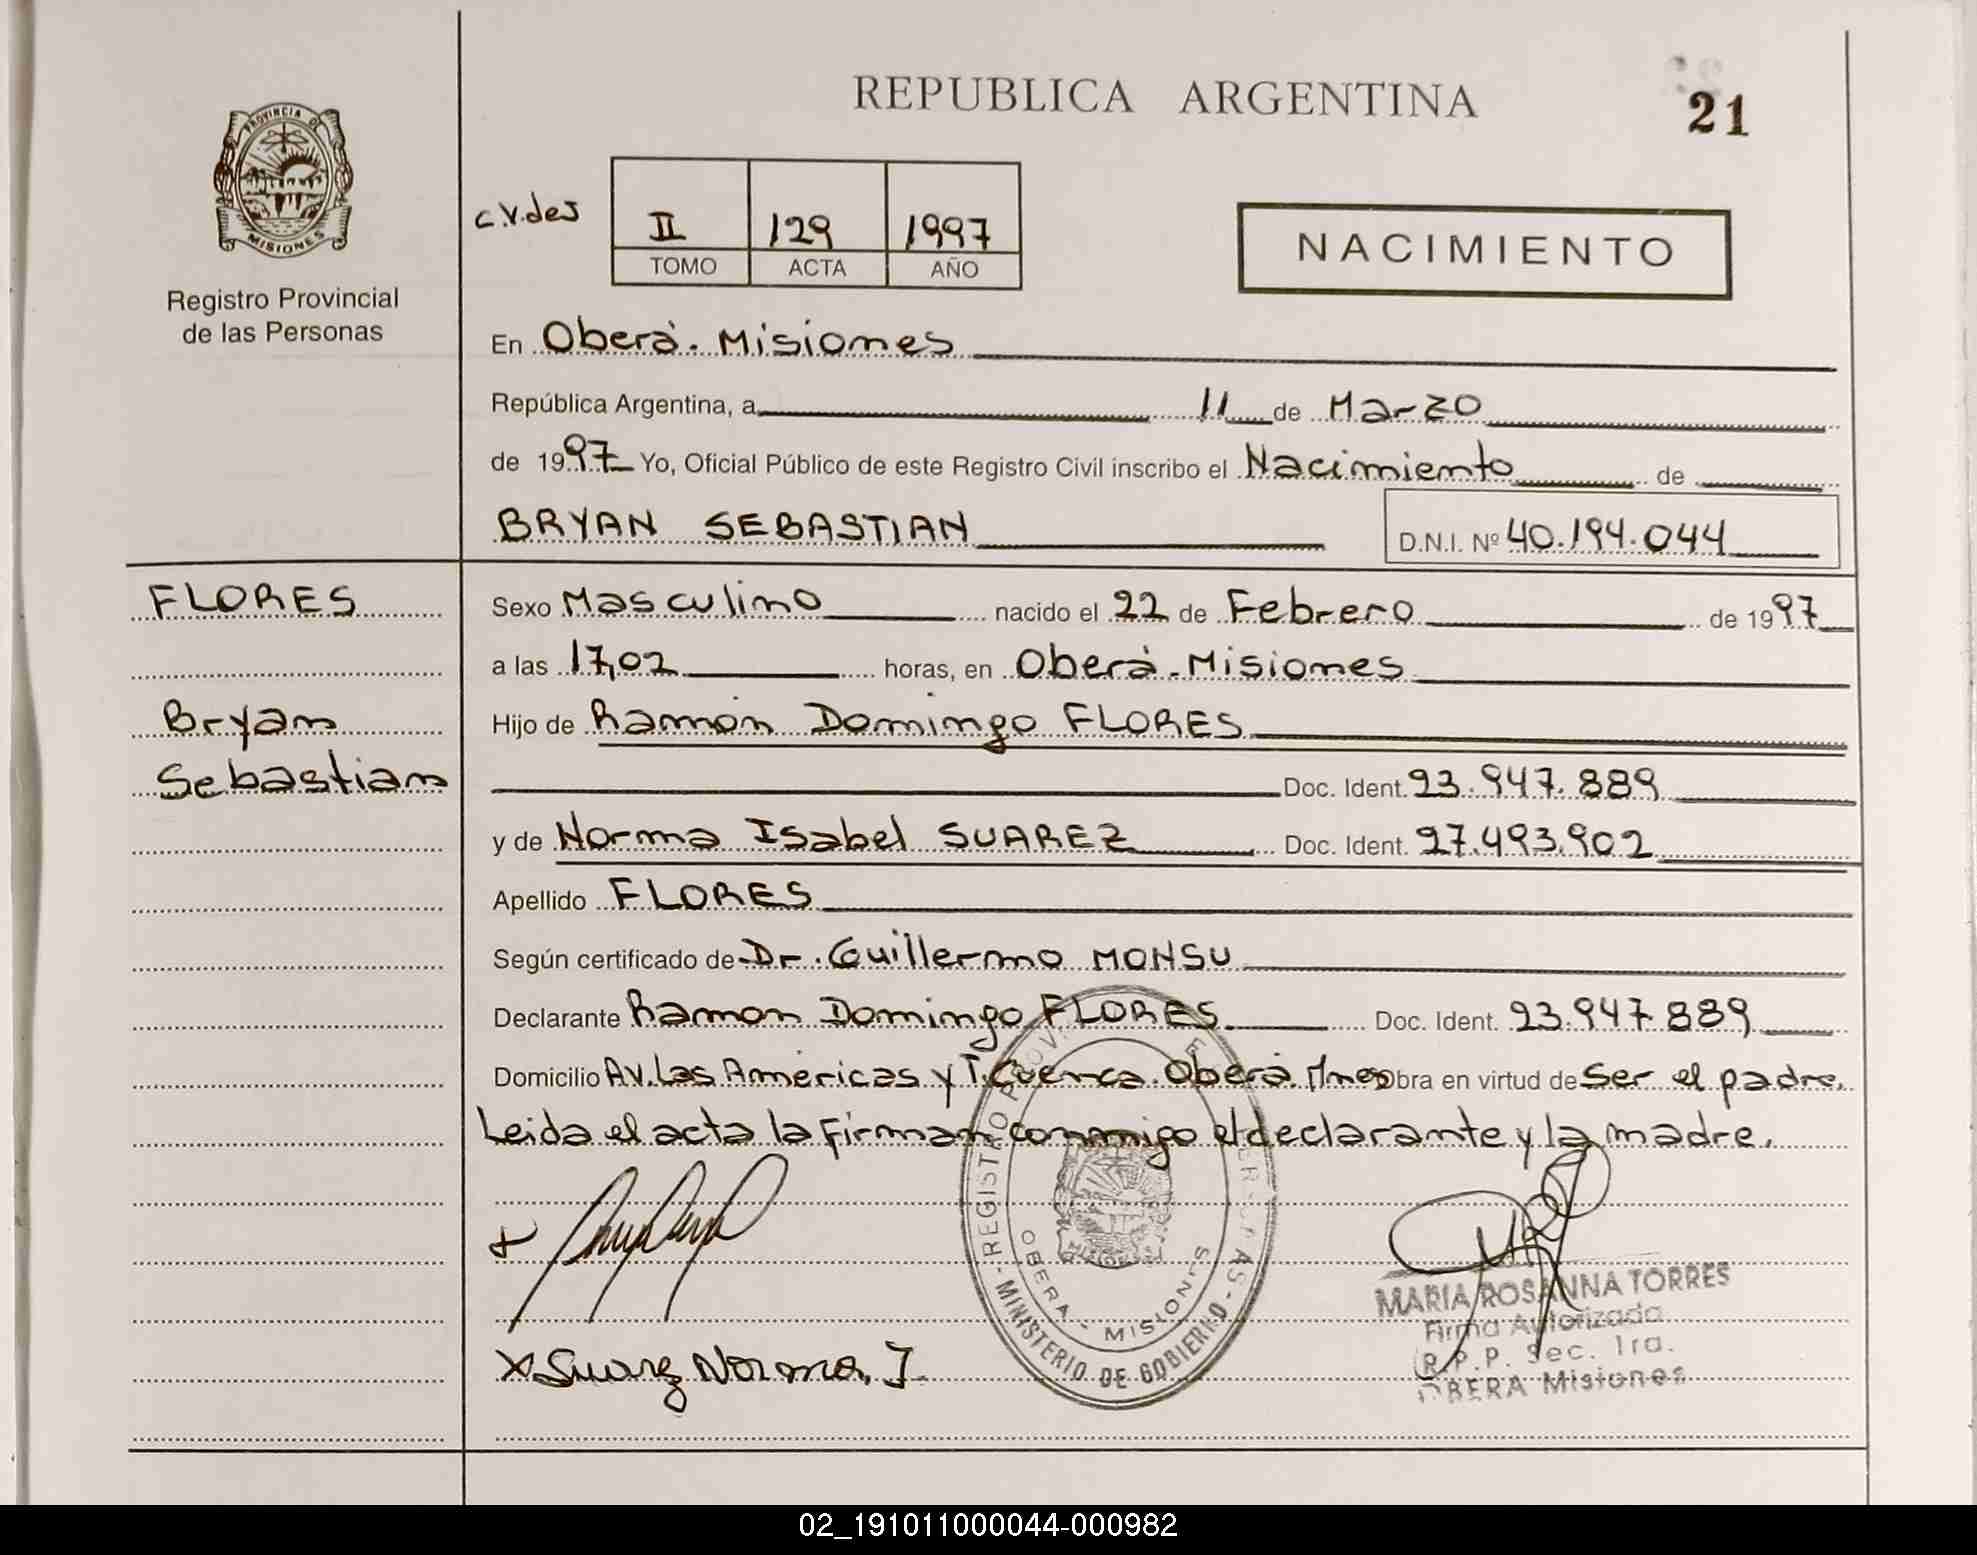 REPUBLICA ARGENTINA
21
PROVINCIA DE
MISIONES
Registro Provincial
de las Personas
c.v.des
II 129 1997
TOMO ACTA AÑO
NACIMIENTO
En Oberá. Misiones
República Argentina, a 11 de Marzo
de 1997 Yo, Oficial Público de este Registro Civil inscribo el Nacimiento de
BRYAN SEBASTIAN D.N.I. Nº 40.194.044
FLORES
Sexo Masculino nacido el 22 de Febrero de 1997
a las 17,02 horas, en Oberá-Misiones
Bryan
Hijo de Ramón Domingo FLORES
Sebastian
Doc. Ident. 23.947.889
y de Norma Isabel SUAREZ Doc. Ident. 27.493.902
Apellido FLORES
Según certificado de Dr. Guillermo MONSU
Declarante Ramon Domingo FLORES Doc. Ident. 23.947.889
Domicilio Av. Las Américas y T. Cuenca. Oberá. Mnes Obra en virtud de ser el padre.
Leida el acta la firman conmigo el declarante y la madre.
REGISTRO PROV. DE PERSONAS
OBERA - MISIONES
MISIONES
MINISTERIO DE GOBIERNO
MARIA ROSANNA TORRES
Firma Autorizada
R.P.P. Sec. 1ra.
OBERA Misiones
X Suarez Norma. I.
02_191011000044-000982